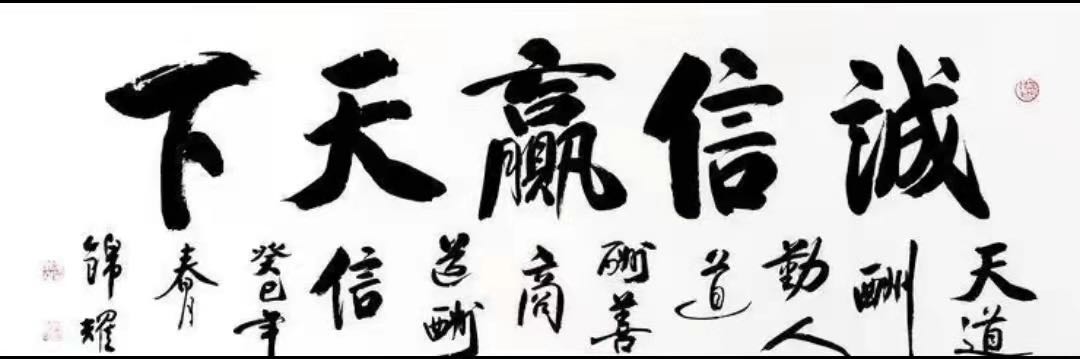 誠信贏天下
天道
酬
勤人
道
酬善
商
道酬
信
癸巳年
春月
錦耀